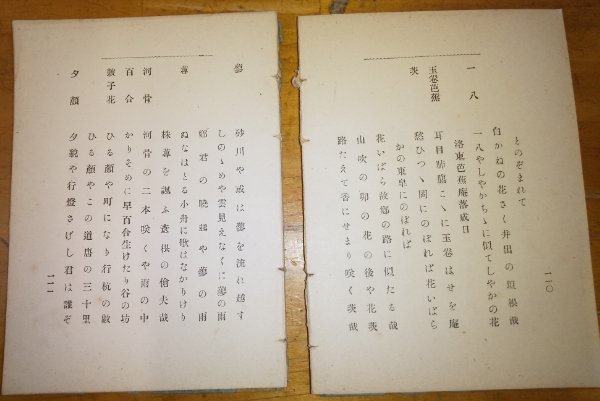 とのぞまれて
白かねの花さく井出の垣根哉
一八 一八やしやがちゝに似てしやがの花
洛東芭蕉庵落成日
玉巻芭蕉 耳目肺腸こゝに玉巻はせを庵
茨 愁ひつゝ岡にのぼれば花いばら
かの東皐にのぼれば
花いばら故郷の路に似たる哉
山吹の卯の花の後や花茨
路たえて香にせまり咲く茨哉
一一〇
蓼 砂川や或は蓼を流れ越す
しのゝめや雲見えなくに蓼の雨
君の暁起や蓼の雨
蓴 ぬなはとる小舟に歌はなかりけり
採蓴を諷ふ彦根の傖夫哉
河骨 河骨の二本咲くや雨の中
百合 かりそめに早百合生けたり谷の坊
鼓子花 ひる顔や町になり行杭の数
ひる顔やこの道唐の三十里
夕顔 夕貌や行燈さげし君は誰ぞ
一一一